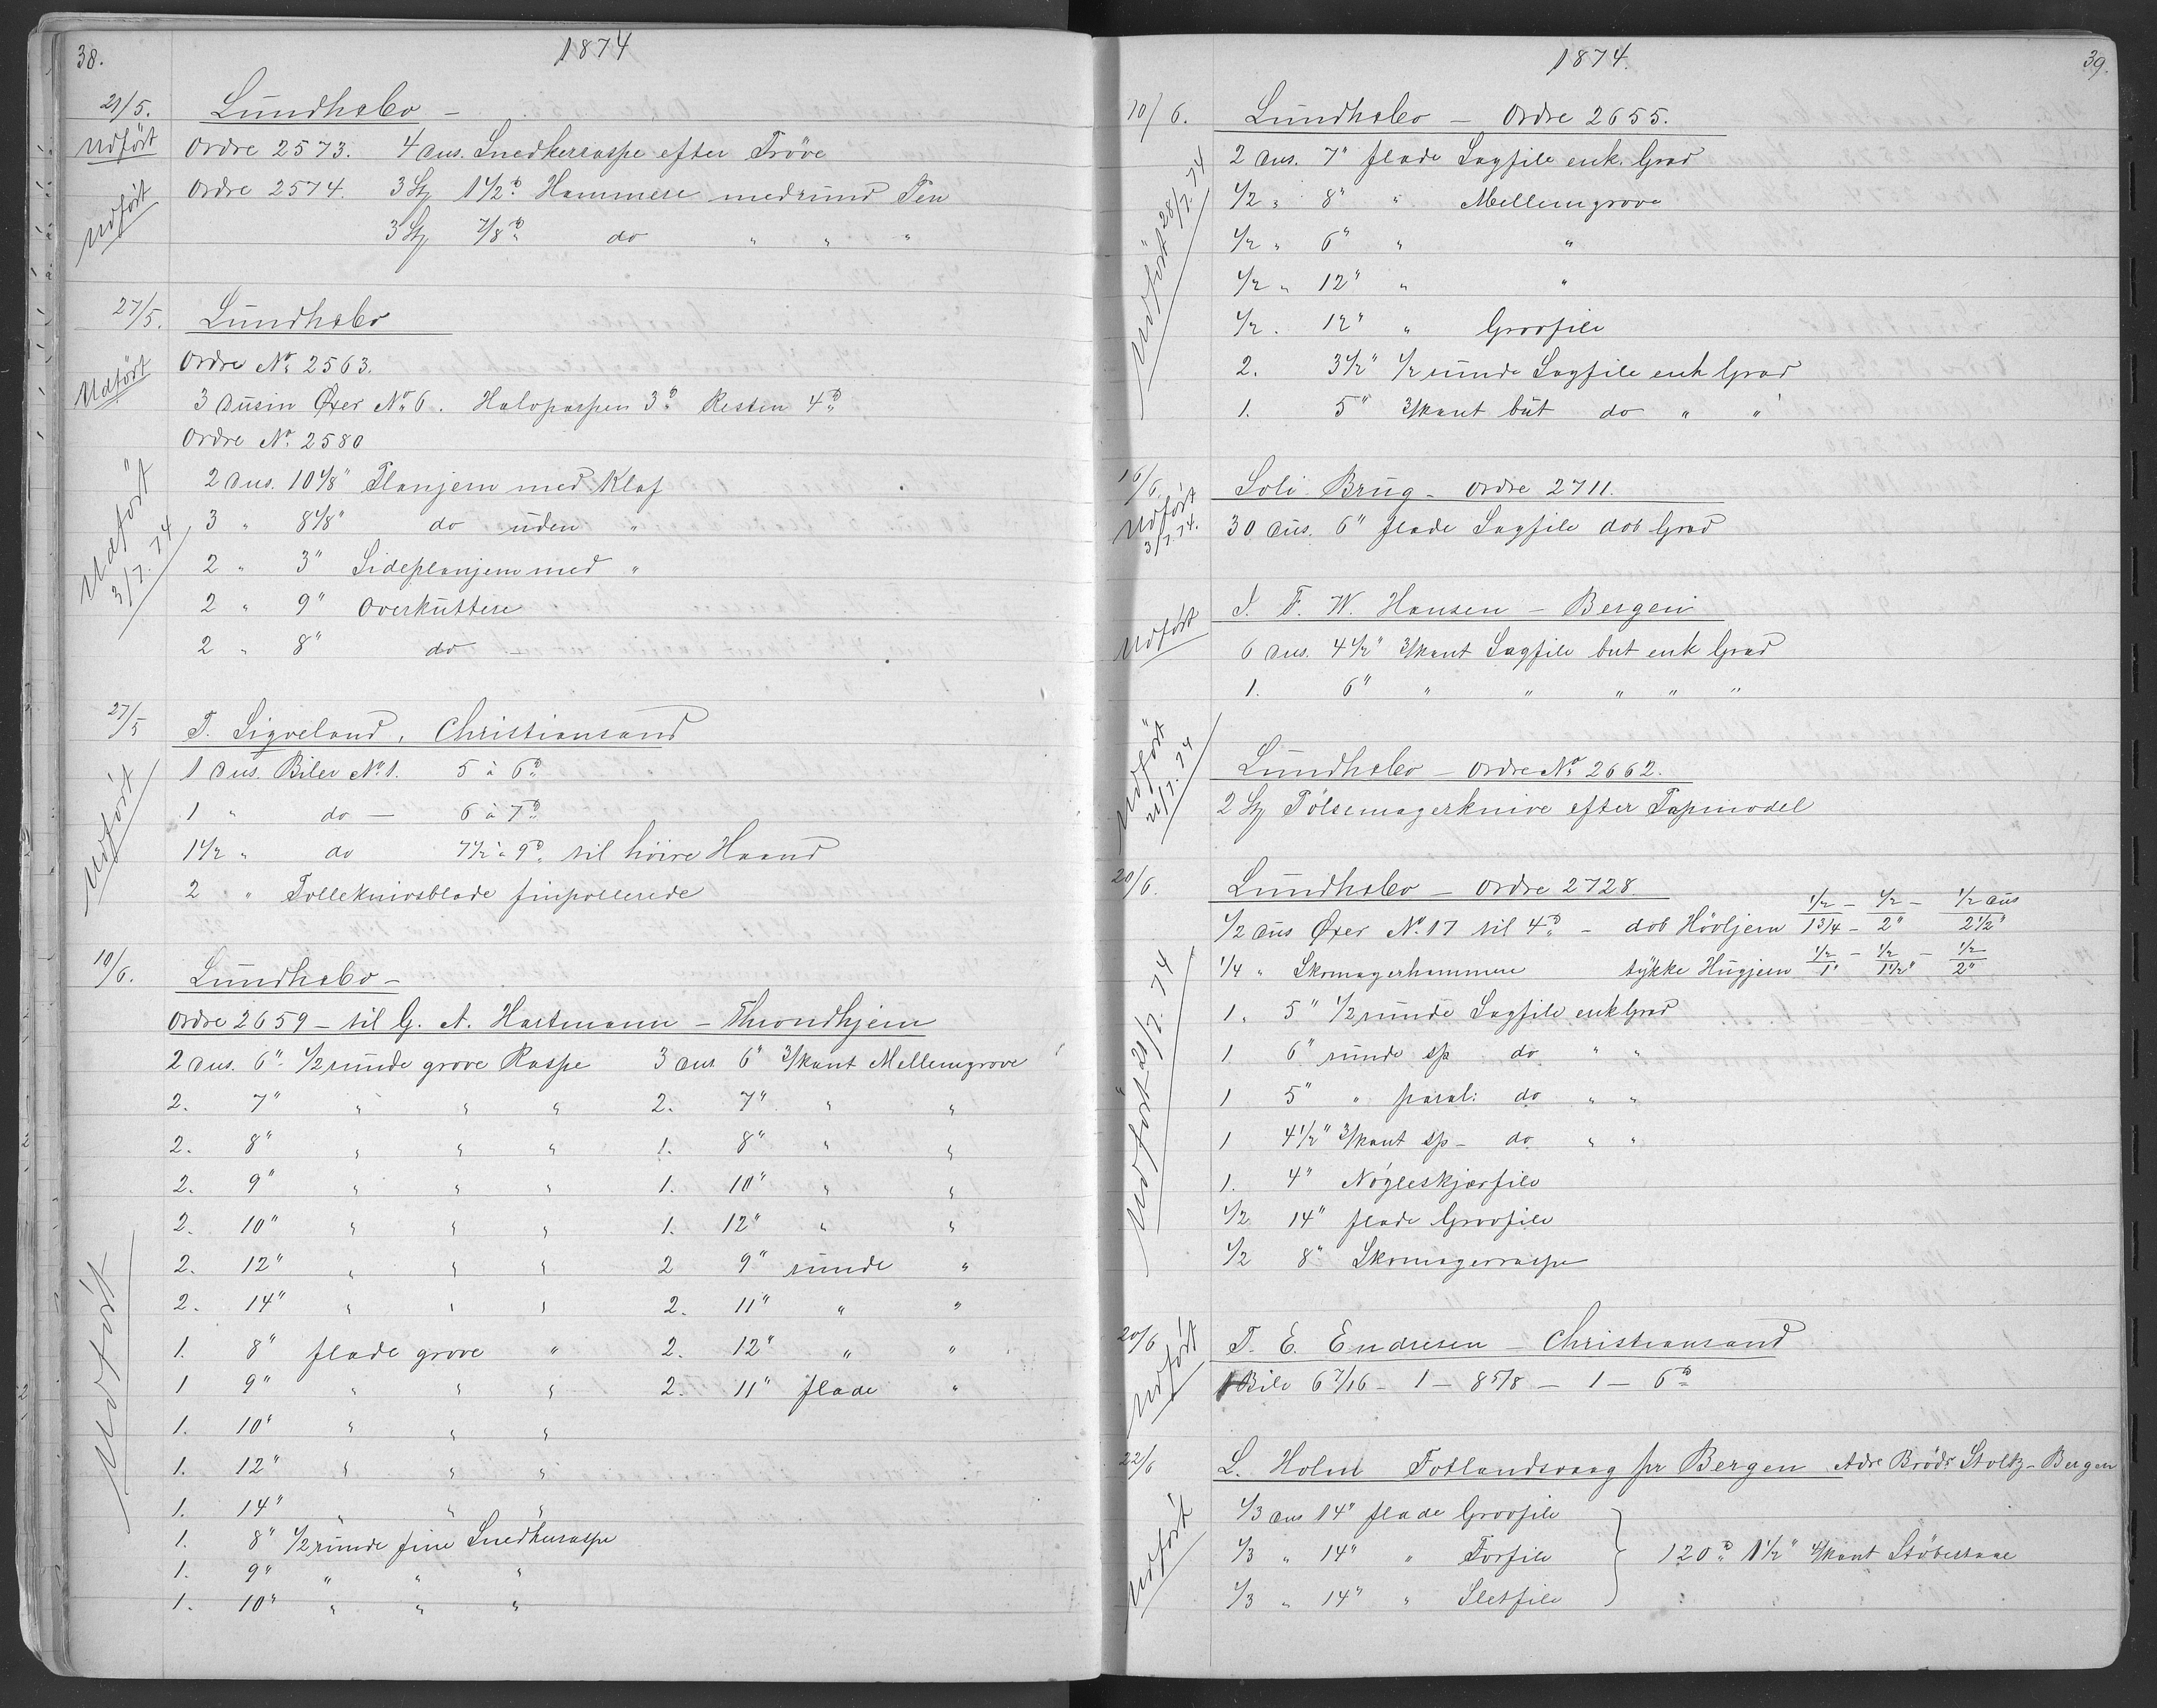 38.
1874
21/5.
Lundhsbo —
Udført
Ordre 2573. 4 dus. Snedkerraspe efter Prøve
Udført
Ordre 2574. 3 Stz 1 1/2 ℔ Hammere med rund Pen
3 Stz 7/8 ℔ do " " "
27/5.
Lundhsbo
Udført
Ordre No 2563.
3 dusin Øxer No 6. Halvparten 3 ℔ Resten 4 ℔
Ordre No 2580
Udført 3/7. 74
2 dus. 10 1/8" Planjern med Klaf
3 " 8 1/8" do uden "
2 " 3" Sideplanjern med "
2 " 9" Overkuttere
2 " 8" do —
27/5
T. Sigveland, Christiansand
Udført
1 dus. Biler No 1. 5 à 6 ℔
1 " do — 6 à 7 ℔
1 1/2 " do 7 1/2 à 9 ℔ til høire Haand
2 " Tolleknivsblade finpolerede
10/6.
Lundhsbo —
Ordre 2659 — til G. A. Hartmann — Throndhjem
Udført
2 dus. 6" 1/2 runde grove Raspe 3 dus 6" 3/kant Mellemgrove
2. 7" " " " 2. 7" " "
2. 8" " " " 1. 8" " "
2. 9" " " " 1. 10" " "
2. 10" " " " 1. 12" " "
2. 12" " " " 2 9" runde "
2. 14" " " " 2. 11" " "
1. 8" flade grove " 2. 12" " "
1 9" " " " 2. 11" flade "
1. 10" " " "
1. 12" " " "
1. 14" " " "
1. 8" 1/2 runde fine Snedkerraspe
1. 9" " " "
1. 10" " " "
1874.
39.
10/6.
Lundhsbo — Ordre 2655.
Udført 28/7. 74
2 dus. 7" flade Sagfile enk. Grad
1/2 " 8" " Mellemgrove
1/2 " 6" " "
1/2 " 12" " "
1/2 . 12" " Grovfile
2. 3 1/2" 1/2 runde Sagfile enk Grad
1. 5" 3/kant but do " "
16/6.
Soli Brug — Ordre 2711.
Udført 3/7. 74.
30 dus. 6" flade Sagfile dob Grad
J. F. W. Hansen — Bergen
Udført
6 dus. 4 1/2" 3/kant Sagfile but enk Grad
1. 6" " " " " "
Udført 21/7. 74
Lundhsbo — Ordre No 2662.
2 Stz Pølsemagerknive efter Papmodel
20/6.
Lundhsbo — Ordre 2728.
Udført 21/7. 74
1/2 dus Øxer No 17 til 4 ℔ — dob Høvljern 1/2 / 1 3/4 — 1/2 / 2" — 1/2 dus / 2 1/2"
1/4 " Skomagerhammere tykke Hugjern 1/2 / 1" — 1/2 / 1 1/2" — 1/2 / 2"
1. 5" 1/2 runde Sagfile enk Grad
1. 6" runde sp do " "
1 5" " paral: do " "
1 4 1/2" 3/kant sp — do " "
1. 4" Nøgleskjærfile
1/2 14" flade Grovfile
1/2 8" Skomagerraspe
20/6
T. E. Endresen — Christiansand
Udført
1 Bile 6 7/16 — 1 — 8 5/8 — 1 — 6 ℔
22/6
L. Holm Fotlandsvaag pr Bergen Adr Brødr Stoltz — Bergen
Udført
1/3 dus 14" flade Grovfile
1/3 " 14" " Forfile } 120 ℔ 1 1/2" 4/kant Støbestaal
1/3 " 14" " Sletfile